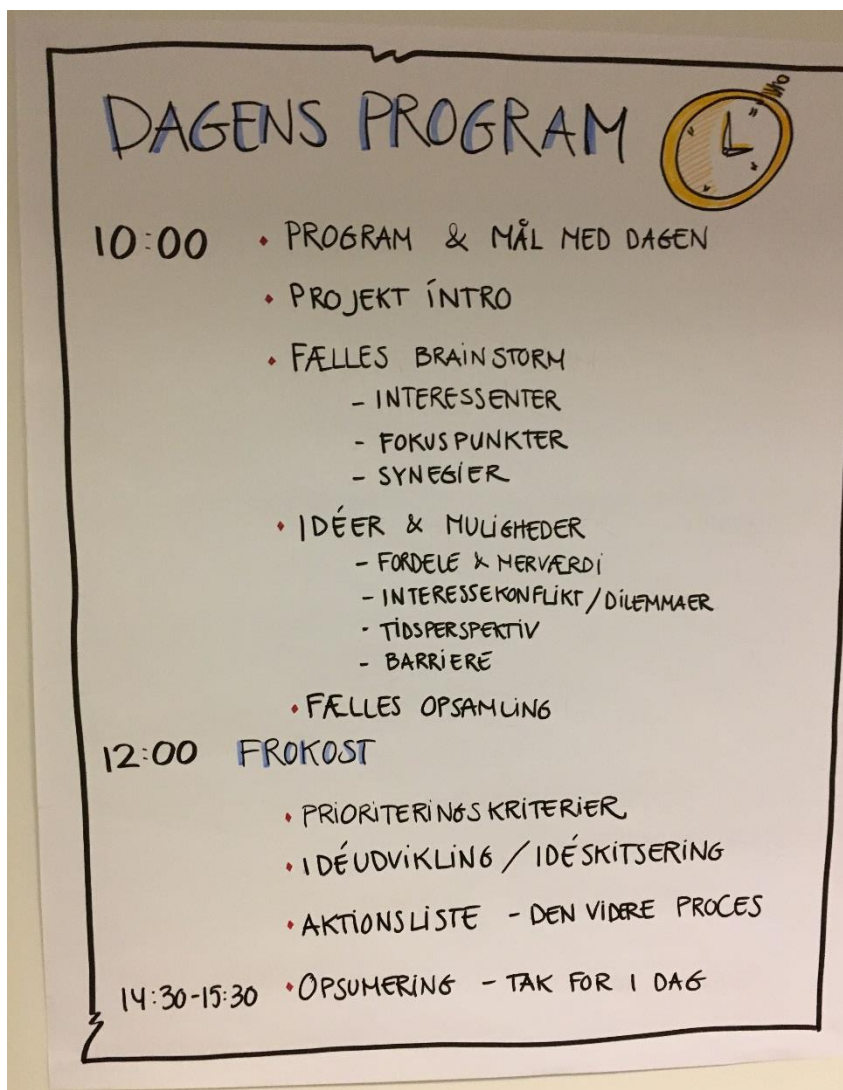 DAGENS PROGRAM
10:00 • PROGRAM & MÅL MED DAGEN
• PROJEKT INTRO
• FÆLLES BRAINSTORM
- INTERESSENTER
- FOKUSPUNKTER
- SYNEGIER
• IDÉER & MULIGHEDER
- FORDELE & MERVÆRDI
- INTERESSEKONFLIKT/DILEMMAER
- TIDSPERSPEKTIV
- BARRIERE
• FÆLLES OPSAMLING
12:00 FROKOST
• PRIORITERINGSKRITERIER
• IDÉUDVIKLING / IDÉSKITSERING
• AKTIONSLISTE - DEN VIDERE PROCES
14:30-15:30 • OPSUMERING - TAK FOR I DAG